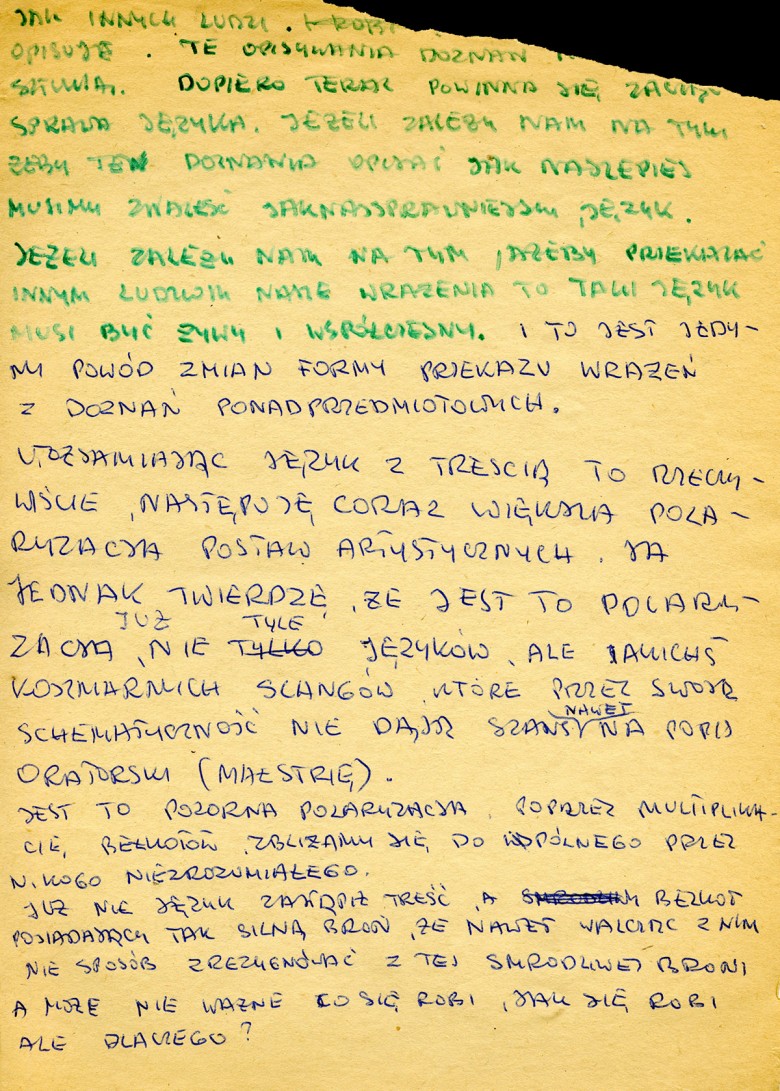 JAK INNYCH LUDZI. ROBI
OPISUJĘ. TE OPISYWANIA DOZNAŃ
SZTUKĄ. DOPIERO TERAZ POWINNA SIĘ ZACZĄĆ
SPRAWA JĘZYKA. JEŻELI ZALEŻY NAM NA TYM
ŻEBY TEN DOZNANIA OPISAĆ JAK NAJLEPIEJ
MUSIMY ZNALEŚĆ JAKNAJSPRAWNIEJSZY, JĘZYK.
JEŻELI ZALEŻY NAM NA TYM, AŻEBY PRZEKAZAĆ
INNYM LUDZIOM NASZE WRAŻENIA TO TAKI JĘZYK
MUSI BYĆ ŻYWY I WSPÓŁCZESNY. I TO JEST JEDY-
NY POWÓD ZMIAN FORMY PRZEKAZU WRAŻEŃ
Z DOZNAŃ PONADPRZEDMIOTOWYCH.
UTOŻSAMIAJĄC JĘZYK Z TREŚCIĄ TO RZECZY-
WIŚCIE, NASTĘPUJĘ CORAZ WIĘKSZA POLA-
RYZACJA POSTAW ARTYSTYCZNYCH. JA
JEDNAK TWIERDZĘ, ŻE JEST TO POLARY-
JUŻ TYLE
ZACJA, NIE TYLKO JĘZYKÓW, ALE JAKICHŚ
KOSZMARNYCH SLANGÓW, KTÓRE PRZEZ SWOJĄ
NAWET
SCHEMATYCZNOŚĆ NIE DAJĄ SZANSY NA POPIS
ORATORSKI (MAESTRIĘ).
JEST TO POZORNA POLARYZACJA. POPRZEZ MULTIPLIKA-
CIĘ, BEŁKOTÓW, ZBLIŻAMY SIĘ, DO WSPÓLNEGO PRZEZ
NIKOGO NIEZROZUMIAŁEGO.
JUŻ NIE JĘZYK ZASTĄPIŁ TREŚĆ, A BEŁKOT
POSIADAJĄCY TAK SILNĄ BROŃ, ŻE NAWET WALCZĄC Z NIM
NIE SPOSÓB ZREZYGNOWAĆ Z TEJ SMRODLIWEJ BRONI
A MOŻE NIE WAŻNE CO SIĘ ROBI, JAK SIĘ ROBI
ALE DLACZEGO?